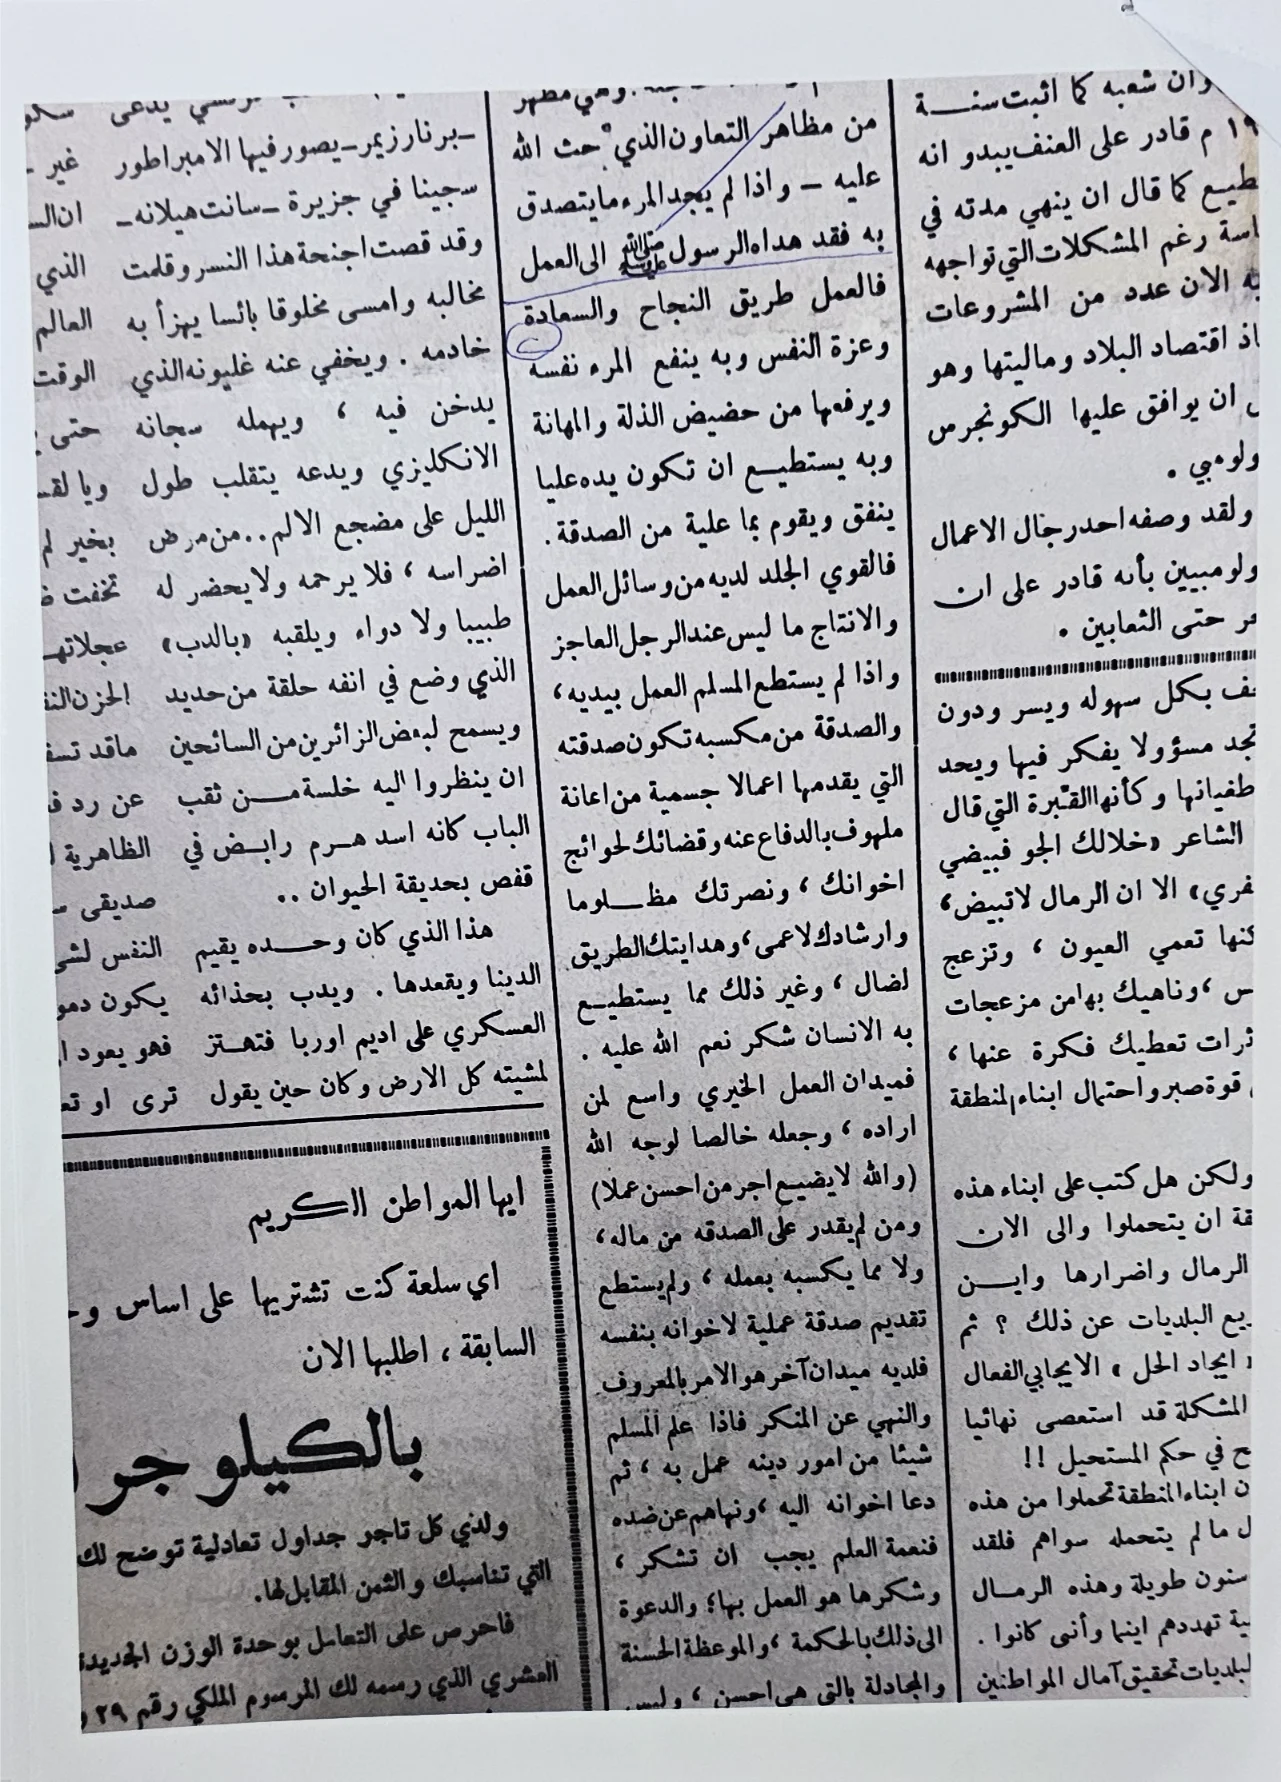 وان شعبه كما اثبت سنة
١٩ م قادر على العنف يبدو انه
كما قال ان ينهي مدته في
رغم المشكلات التي تواجهه
الان عدد من المشروعات
اقتصاد البلاد وماليتها وهو
ان يوافق عليها الكونجرس
ولقد وصفه احد رجال الاعمال
بأنه قادر على ان
حتى الثعابين .
بكل سهوله ويسر ودون
مسؤولا يفكر فيها ويحد
طغيانها وكأنها القبرة التي قال
الشاعر «خلالك الجو فبيضي
الا ان الرمال لاتبيض،
تعمي العيون ، وتزعج
، وناهيك بها من مزعجات
تعطيك فكرة عنها ،
قوة صبر واحتمال ابناء المنطقة
ولكن هل كتب على ابناء هذه
ان يتحملوا والى الان
الرمال واضرارها واين
البلديات عن ذلك ؟ ثم
ايجاد الحل » الايجابي الفعال
المشكلة قد استعصى نهائيا
في حكم المستحيل !!
ابناء المنطقة تحملوا من هذه
ما لم يتحمله سواهم فلقد
سنون طويلة وهذه الرمال
تهددهم اينما وأنى كانوا .
تحقيق آمال المواطنين
وهي مظهر
من مظاهر التعاون الذي حث الله
عليه – واذا لم يجد المرء مايتصدق
به فقد هداه الرسول ﷺ الى العمل
فالعمل طريق النجاح والسعادة
وعزة النفس وبه ينفع المرء نفسه
ويرفعها من حضيض الذلة والمهانة
وبه يستطيع ان تكون يده عليا
ينفق ويقوم بما علية من الصدقة .
فالقوي الجلد لديه من وسائل العمل
والانتاج ما ليس عند الرجل العاجز
واذا لم يستطع المسلم العمل بيديه ،
والصدقة من مكسبه تكون صدقته
التي يقدمها اعمالا جسمية من اعانة
ملهوف بالدفاع عنه وقضائك لحوائج
اخوانك ، ونصرتك مظلوما
وارشادك لاعمى ، وهدايتك الطريق
لضال ، وغير ذلك مما يستطيع
به الانسان شكر نعم الله عليه .
فميدان العمل الخيري واسع لمن
اراده ، وجعله خالصا لوجه الله
(والله لا يضيع اجر من احسن عملا)
ومن لم يقدر على الصدقه من ماله ،
ولا مما يكسبه بعمله ، ولم يستطع
تقديم صدقة عملية لاخوانه بنفسه
فلديه ميدان آخر هو الامر بالمعروف
والنهي عن المنكر فاذا علم المسلم
شيئا من امور دينه عمل به ، ثم
دعا اخوانه اليه ، ونهاهم عن ضده
فنعمة العلم يجب ان تشكر ،
وشكرها هو العمل بها؛ والدعوة
الى ذلك بالحكمة ، والموعظة الحسنة
والمجادلة بالتي هي احسن ، وليس
يدعى
–برنار زيمر– يصور فيها الامبراطور
سجينا في جزيرة –سانت هيلانه–
وقد قصت اجنحة هذا النسر وقلمت
مخالبه وامسى مخلوقا بائسا يهزأ به
خادمه . ويخفي عنه غليونه الذي
يدخن فيه ، ويهمله سجانه
الانكليزي ويدعه يتقلب طول
الليل على مضجع الالم .. من مرض
اضراسه ، فلا يرحمه ولا يحضر له
طبيبا ولا دواء ويلقبه «بالدب»
الذي وضع في انفه حلقة من حديد
ويسمح لبعض الزائرين من السائحين
ان ينظروا اليه خلسة من ثقب
الباب كانه اسد هرم رابض في
قفص بحديقة الحيوان ..
هذا الذي كان وحده يقيم
الدينا ويقعدها . ويدب بحذائه
العسكري على اديم اوربا فتهتز
لمشيته كل الارض وكان حين يقول
غير
الذي
العالم
الوقت
حتى
بخير لم
تخفت
ماقد
عن رد
الظاهرية
صديقي
النفس
يكون
فهو يعود
ترى او
ايها المواطن الكريم
اي سلعة كنت تشتريها على اساس
السابقة ، اطلبها الان
بالكيلو جر
ولدي كل تاجر جداول تعادلية توضح لك
التي تناسبك والثمن المقابل لها.
فاحرص على التعامل بوحدة الوزن الجديدة
العشري الذي رسمه لك المرسوم الملكي رقم ٢٩